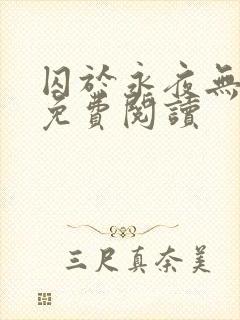 囚於永夜無
免費閱讀
三尺真奈美